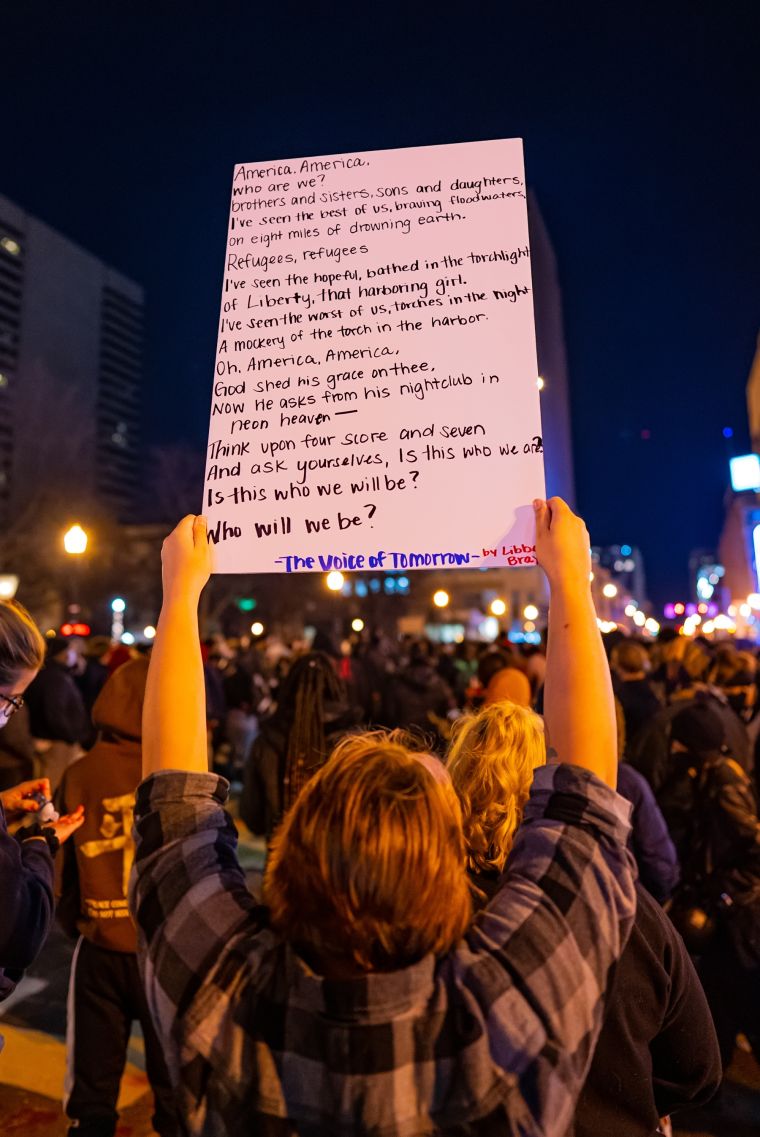 America. America,
who are we?
brothers and sisters, sons and daughters,
I've seen the best of us, braving floodwaters,
on eight miles of drowning earth.
Refugees, refugees
I've seen the hopeful, bathed in the torchlight
of Liberty, that harboring girl.
I've seen the worst of us, torches in the night
A mockery of the torch in the harbor.
Oh, America, America,
God shed his grace on thee,
Now He asks from his nightclub in
neon heaven —
Think upon four score and seven
And ask yourselves, Is this who we are?
Is this who we will be?
Who will we be?
-The Voice of Tomorrow- by Libba
Bray